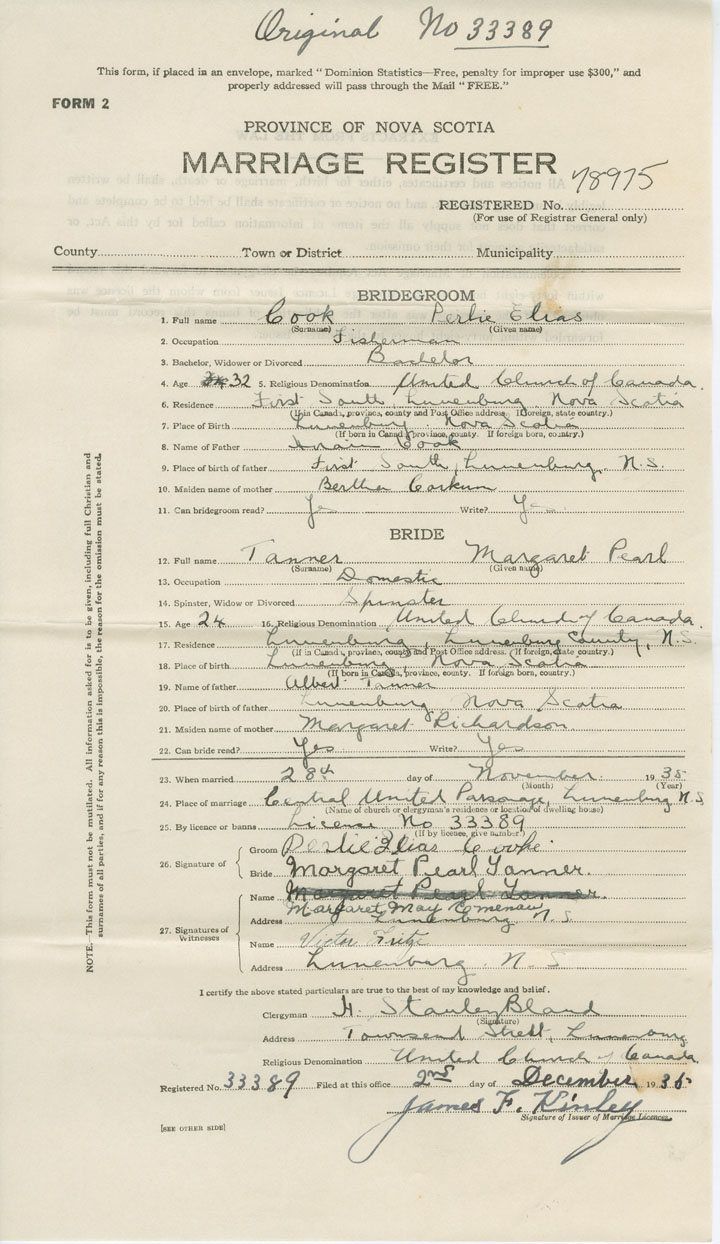 Original No 33389
This form, if placed in an envelope, marked "Dominion Statistics—Free, penalty for improper use $300," and
properly addressed will pass through the Mail "FREE."
FORM 2
PROVINCE OF NOVA SCOTIA
MARRIAGE REGISTER
78975
REGISTERED No.
(For use of Registrar General only)
County Town or District Municipality
BRIDEGROOM
1. Full name Cook Perlie Elias
(Surname) (Given name)
2. Occupation Fisherman
3. Bachelor, Widower or Divorced Bachelor
4. Age 32 5. Religious Denomination United Church of Canada.
6. Residence First South, Lunenburg, Nova Scotia
(If in Canada, province, county and Post Office address. If foreign, state country.)
7. Place of Birth Lunenburg, Nova Scotia
(If born in Canada, province, county. If foreign born, country.)
8. Name of Father Hiram Cook
9. Place of birth of father First South, Lunenburg, N.S.
10. Maiden name of mother Bertha Corkum
11. Can bridegroom read? Yes Write? Yes
BRIDE
12. Full name Tanner Margaret Pearl
(Surname) (Given name)
13. Occupation Domestic
14. Spinster, Widow or Divorced Spinster
15. Age 24 16. Religious Denomination United Church of Canada.
17. Residence Lunenburg, Lunenburg County, N.S.
(If in Canada, province, county and Post Office address. (If foreign, state country.)
18. Place of birth Lunenburg, Nova Scotia
(If born in Canada, province, county. If foreign born, country.)
19. Name of father Albert Tanner
20. Place of birth of father Lunenburg Nova Scotia
21. Maiden name of mother Margaret Richardson
22. Can bride read? Yes Write? Yes
23. When married 28th day of November 1935
(Month) (Year)
24. Place of marriage Central United Parsonage, Lunenburg N.S.
(Name of church or clergyman's residence or location of dwelling house)
25. By licence or banns License No 33389
(If by licence, give number.)
26. Signature of Groom Perlie Elias Cooke
Bride Margaret Pearl Tanner.
Name Margaret Pearl Tanner.
Margaret May
27. Signatures of Witnesses Address Lunenburg N.S.
Name Victor Fritz
Address Lunenburg. N.S
I certify the above stated particulars are true to the best of my knowledge and belief.
Clergyman H. Stanley Bland
(Signature)
Address Townsend Street, Lunenburg
Religious Denomination United Church of Canada
Registered No. 33389 Filed at this office 2nd day of December 1935
James F. Kinley
Signature of Issuer of Marriage Licences.
[SEE OTHER SIDE]
NOTE.—This form must not be mutilated. All information asked for is to be given, including full Christian and
surnames of all parties, and if for any reason this is impossible, the reason for the omission must be stated.